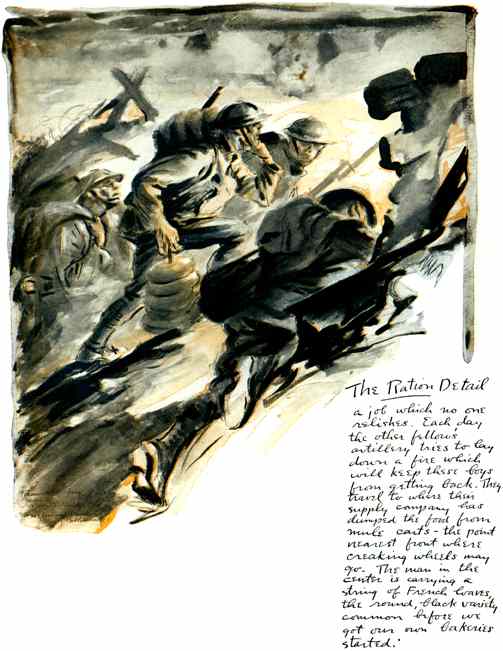 The Ration Detail
a job which no one
relishes. Each day
the other fellows
artillery tries to lay
down a fire which
will keep these boys
from getting back. They
travel to where their
supply company has
dumped the food from
mule carts - the point
nearest front where
creaking wheels may
go. The man in the
center is carrying a
string of French loaves,
the round, black variety
common before we
got our own bakeries
started.